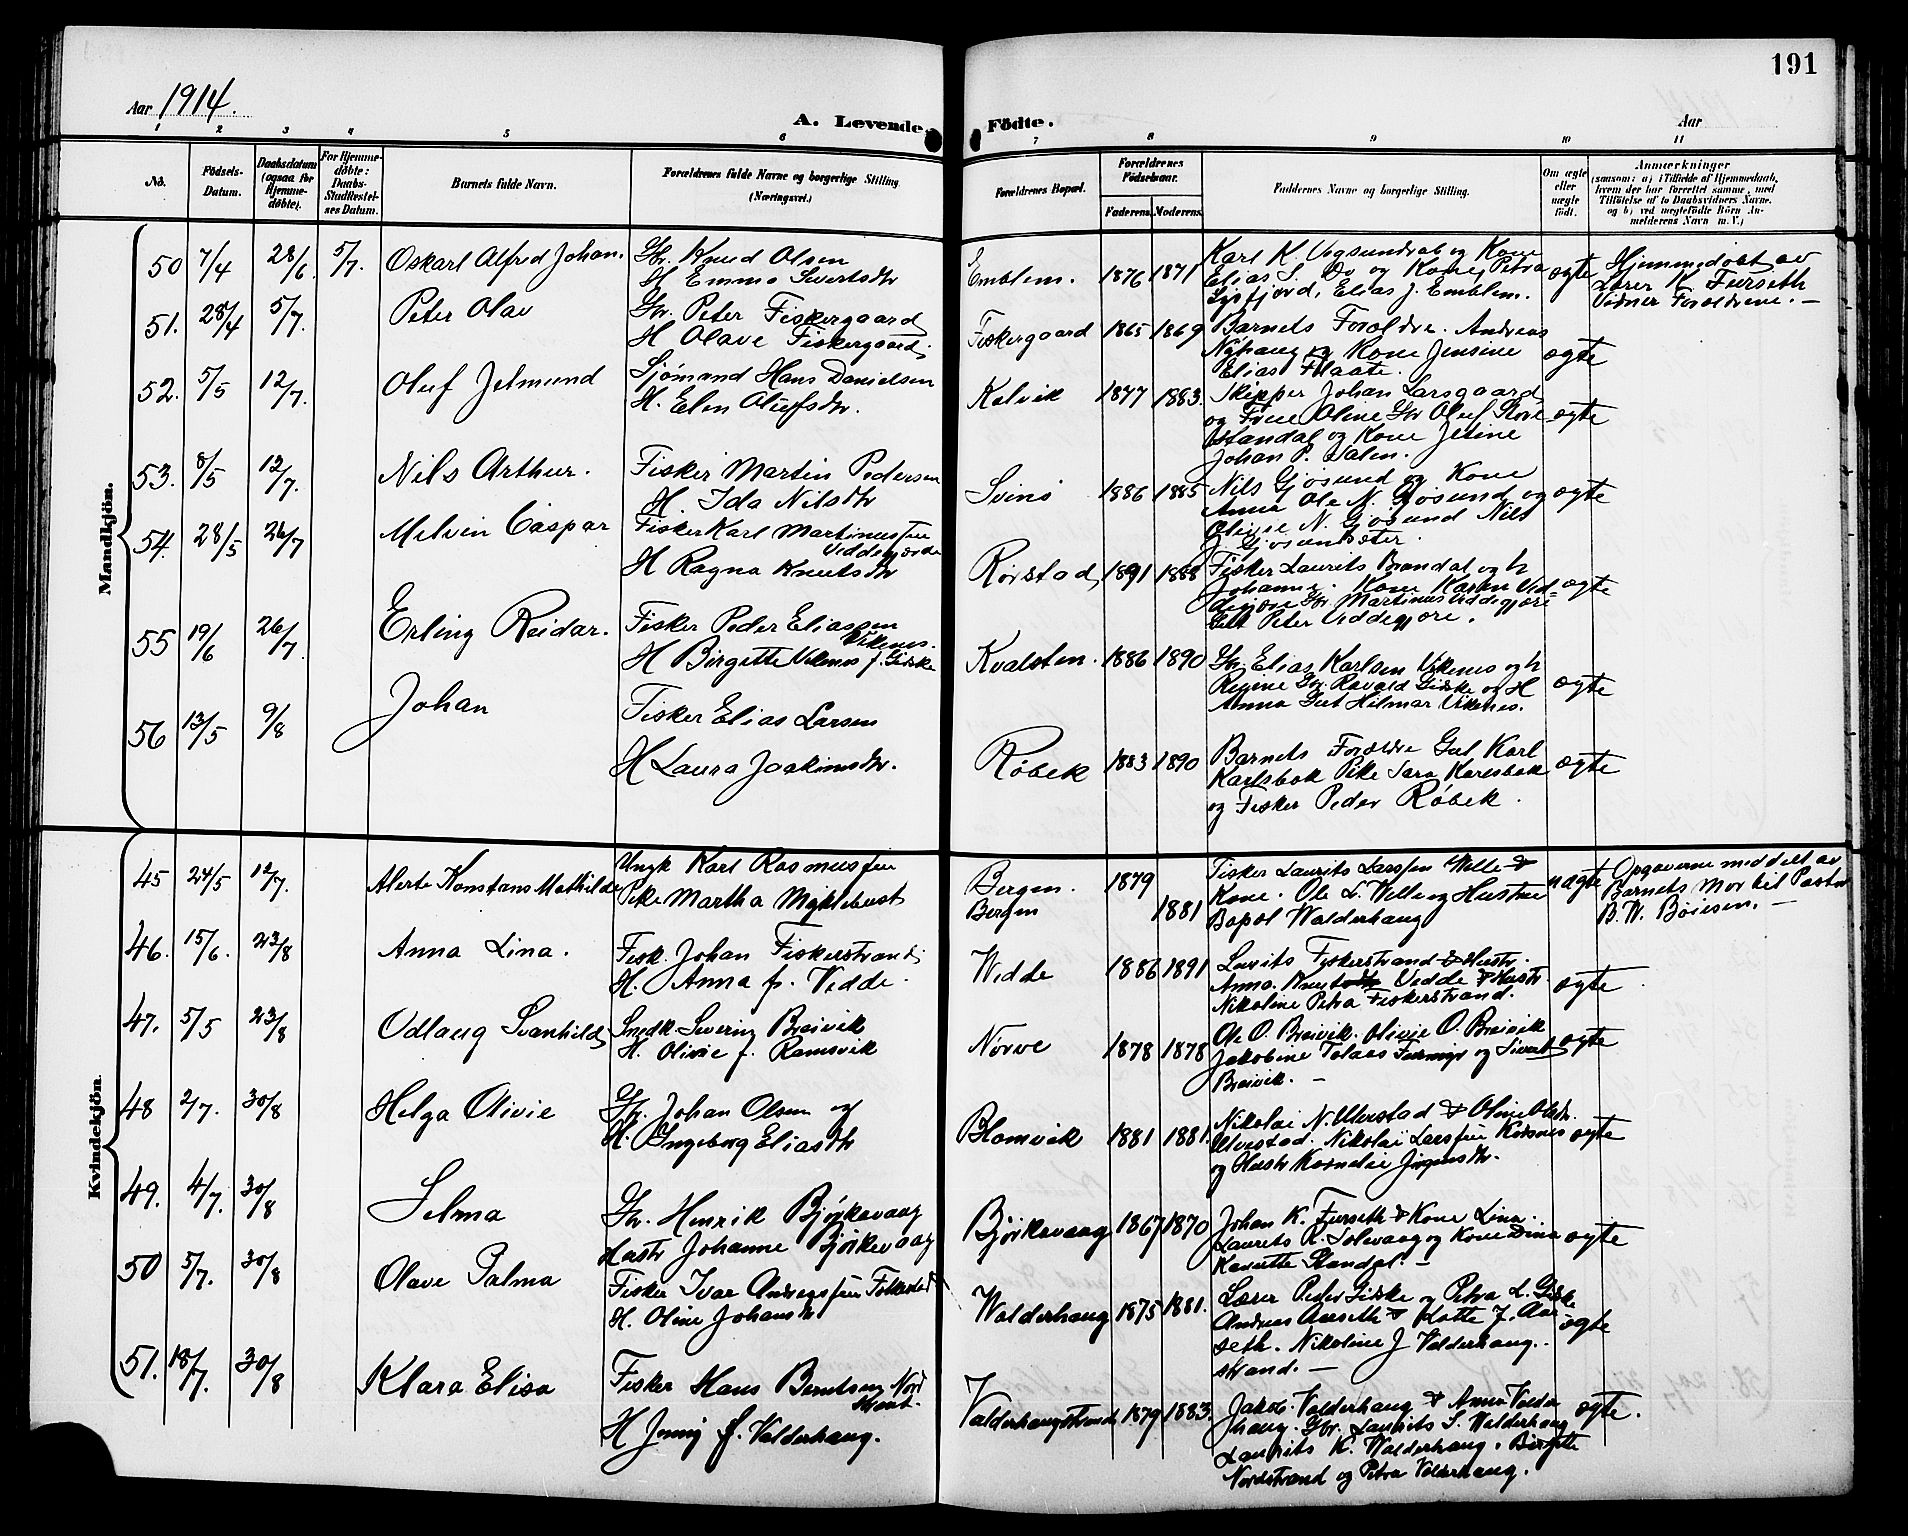 191
Aar 1914.
A. Levende Födte.
Aar
1 2 3 4 5 6 7 8 9 10 11
No.
Födsels-Datum.
Daabsdatum (ogsaa for Hjemme-döbte).
For Hjemme-döbte: Daabs-Stadfæstel-ses Datum.
Barnets fulde Navn.
Forældrenes fulde Navne og borgerlige Stilling (Næringsvei.)
Forældrenes Bopæl.
Forældrenes Födselsaar.
Faderens Moderens
Faddernes Navne og borgerlige Stilling.
Om ægte eller uægte födt.
Anmærkninger
(saasom: a) i Tilfælde af Hjemmedaab,
hvem der har forrettet samme, med
Tilföielse af to Daabsvidners Navne.
og b) ved uægtefödte Börn An-
melderens Navn m. V.)
Mandkjön.
50 7/4 28/6. 5/7. Oskarl Alfred Johan. Gbr. Knud Olsen
H. Emma Sivertsdtr
Emblem. 1876 1871
Karl K. Vegsundral og Kone
Elias S. Bø og Kone, Petra
Lysfjord, Elias J. Emblem.
ægte
Hjemmedøbt av
Lærer K. Furseth
Vidner Forældrene. —
51. 28/4 5/7. Peter Olav Gbr. Peter Fiskergaard
H Olave Fiskergaard
Fiskergaard 1865 1869
Barnets Forældre. Andreas
Nyhaug og Kone Jensine
Elias Flaate.
ægte
52. 5/5 12/7. Oluf Jelmund Sjømand Hans Danielsen
H. Elen Olufsdtr.
Kalvik 1877 1883.
Skipper Johan Larsgaard
og Frue Oline Gbr Oluf
Standal og Kone Jetine
Johan P. Valen.
ægte
53. 8/5 12/7. Nils Arthur. Fisker Martin Pedersen
H. Ida Nilsdtr
Svinø 1886 1885
Nils Gjøsund og Kone
Anna Ole N. Gjøsund og
Olivie N. Gjøsund Nils
J. Gjøsundsæter.
ægte
54. 28/5 26/7 Melvin Caspar Fisker Karl Martinussen
Veddegjærde
H Ragna Knutsdtr
Rørstad 1891 1888
Fisker Laurits Brandal og h
Johanne. Kone Karen Ved-
degjære Gbr Martinus Veddegjære
Gut Peter Veddegjøre.
ægte
55 19/6 26/7. Erling Reidar. Fisker Peder Eliassen
Vikenes.
H Birgitte Vikenes f. Giske
Kvalsten. 1886 1890
Gbr. Elias Karlsen Vikenes og h
Regine Gbr. Ravald Giske og H
Anna Gut Hilmar Vikenes.
ægte
56 13/5 9/8 Johan Fisker Elias Larsen
H Laura Joakimsdtr.
Røbek 1883 1890
Barnets Forældre Gut Karl
Karlsbak Pike Sara Karlsbak
og Fisker Peder Røbek.
ægte
Kvindekjön.
45 24/5 12/7. Alerte Konstans Mathilde Ungk Karl Rasmussen
Pike Martha Myklebust
Bergen. 1879
Bergen 1881
Fisker Laurits Larssen Welle &
Kone. Ole L. Welle og Hustru
Bopæl Walderhaug
uægte
Opgaverne meddelt av
Barnets Mor til Pastor
B. W. Bøiesen. —
46. 15/6. 23/8 Anna Lina. Fisk. Johan Fiskerstrand
H. Anna f. Vedde.
Wedde 1886 1891
Laurits Fiskerstrand & Hustr.
Anna. Knut Vedde & Hustr
Nikoline Petra Fiskerstrand.
ægte
47. 5/5 23/8 Odlaug Svanhild Snedk. Severin Breivik
H. Olivie f. Ramsvik
Nørve 1878 1878
Ole O. Breivik. Olivie O. Breivik
Jakobine Tolaas og Sivert
Breivik. —
ægte
48 2/7. 30/8 Helga Olivie Gbr. Johan Olsen og
H. Ingeborg Eliasdtr
Blomvik 1881 1881.
Nikolai N. Ulvestad & Oline Olsdtr.
Ulvestad. Nikolai Larssen
og Hustr Kornelie Jørgensdtr.
ægte
49. 4/7. 30/8 Selma Gbr. Henrik Bjørkavaag
Hustr Johanne Bjørkevaag
Bjørkavaag 1867 1870
Johan K. Furseth & Kone Lina.
Laurits R. Solevaag og Kone Dina
Kanutte Standal. —
ægte
50 5/7. 30/8 Olave Palma Fisker Ivar Andreassen Folkestad
H. Oline Johansdtr
Walderhaug 1875 1881.
Lærer Peder Giske og Petra L. Giske
Andreas Aarseth & Lotte J. Aar
seth. Nikoline J Valderhaug.
strand. —
ægte
51. 18/7. 30/8 Klara Elisa Fisker Hans Berntsen Nord
strand.
H Jenny f. Valderhaug.
Valderhaugstrand 1879 1883.
Jakob Valderhaug & Anna Valder
haug. Gbr. Laurits S. Walderhaug
Laurits K. Walderhaug. Birgitte
Nordstrand og Petra Valderhaug.
ægte.